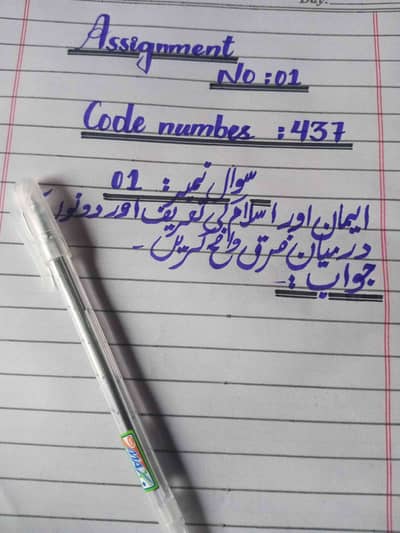 Day:
Assignment
No : 01
Code number : 437
سوال نمبر : 01
ایمان اور اسلام کی تعریف اور دونوں کے
درمیان فرق واضح کریں ۔
جواب :-